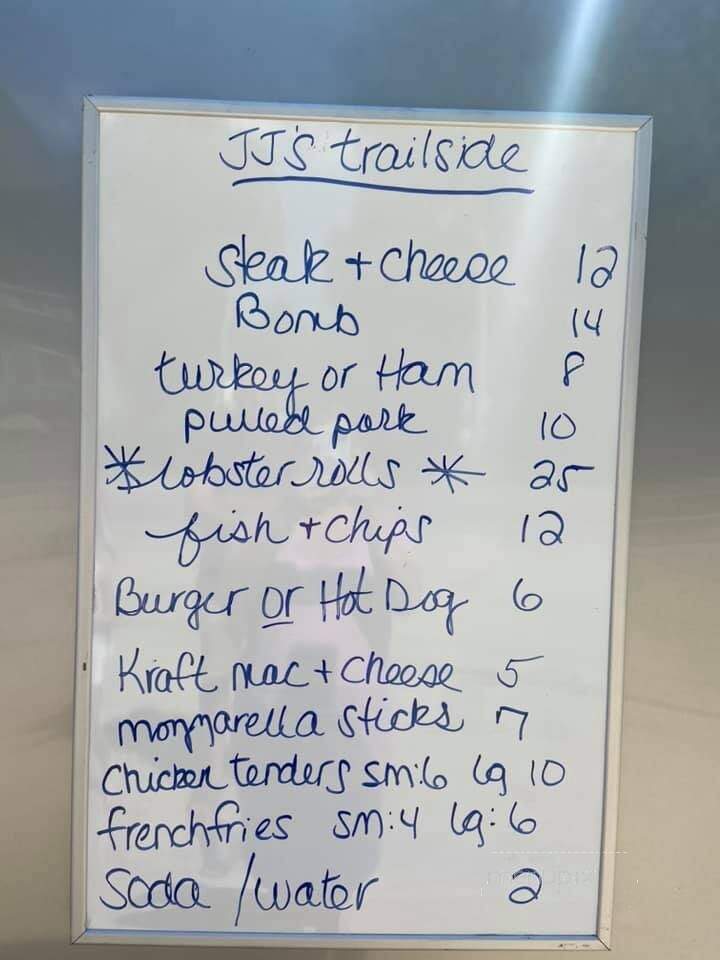 JJ's trailside
Steak + Cheese 12
Bomb 14
turkey or Ham 8
pulled pork 10
*lobster rolls * 25
fish + chips 12
Burger or Hot Dog 6
Kraft mac + Cheese 5
mozzarella sticks 7
Chicken tenders sm:6 lg 10
frenchfries sm:4 lg:6
Soda / water 2